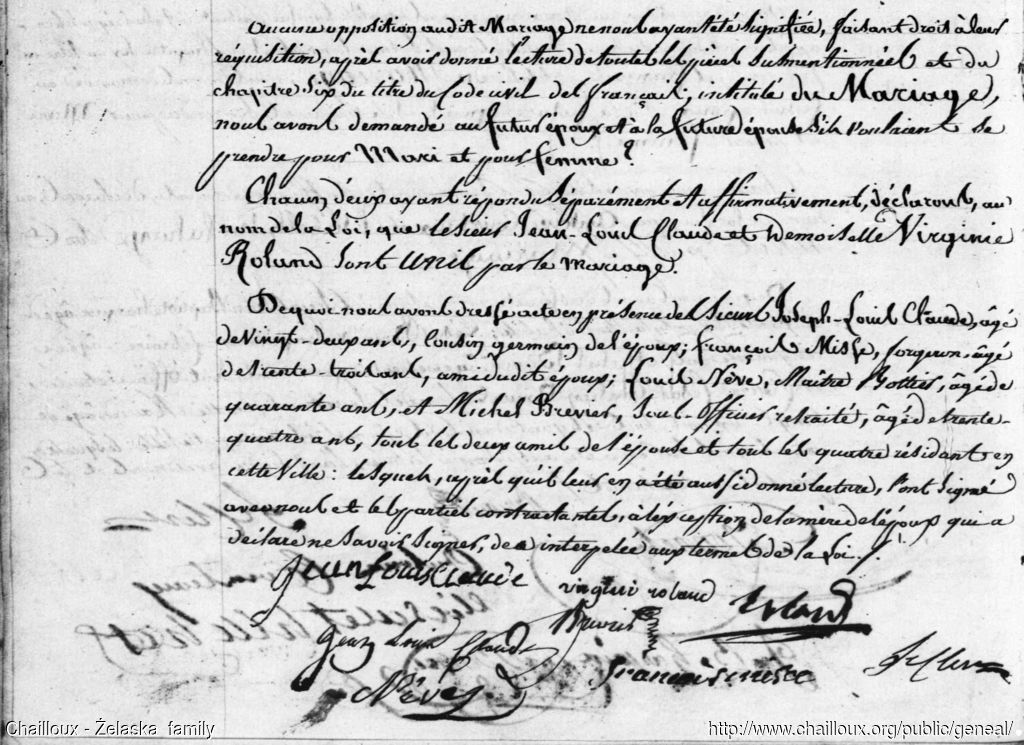 Aucune opposition audit Mariage ne nous ayant été signifiée, faisant droit à leur
réquisition, après avoir donné lecture de toutes les pièces susmentionnées et du
chapitre Six du titre du Code civil des français, intitulé du Mariage,
nous avons demandé au futur époux et à la future épouse s'ils voulaient se
prendre pour Mari et pour femme?
Chacun d'eux ayant répondu séparément et affirmativement, déclarons, au
nom de la Loi, que le sieur Jean-Louis Claude et Demoiselle Virginie
Roland sont unis par le mariage.
De quoi nous avons dressé acte en présence des Sieurs Joseph-Louis Claude, âgé
de vingt-deux ans, cousin germain de l'époux; françois Misse, forgeron, âgé
de trente-trois ans, ami dudit époux; Louis Nève, Maître Bottier, âgé de
quarante ans, et Michel Brevier, Sous-Officier retraité, âgé de trente-
quatre ans, tous les deux amis de l'épouse et tous les quatre résidant en
cette Ville: lesquels, après qu'il leur en a été aussi donné lecture, l'ont signé
avec nous et les parties contractantes, à l'exception de la mère de l'époux qui a
déclaré ne savoir signer, de ce interpelée aux termes de la Loi.
Jean Louis Claude
virginie roland
Roland
Claude
françois misse
Nève
Chailloux - Želaska family
http://www.chailloux.org/public/geneal/